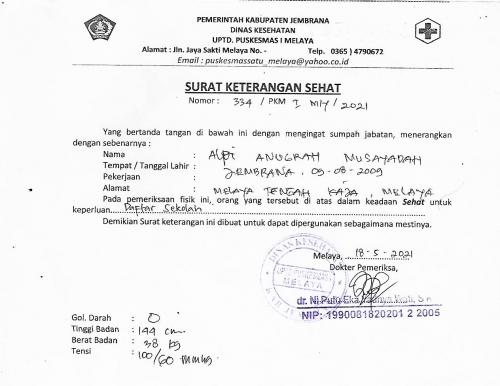 PEMERINTAH KABUPATEN JEMBRANA
DINAS KESEHATAN
UPTD. PUSKESMAS I MELAYA
Alamat : Jln. Jaya Sakti Melaya No. - Telp. 0365 ) 4790672
Email : puskesmassatu_melaya@yahoo.co.id
SURAT KETERANGAN SEHAT
Nomor : 334 / PKM I M/Y / 2021
Yang bertanda tangan di bawah ini dengan mengingat sumpah jabatan, menerangkan
dengan sebenarnya :
Nama : ANUGRAH MUSAYADAH
Tempat / Tanggal Lahir : JEMBRANA, 09-08-2009
Pekerjaan :
Alamat : MELAYA TENGAH KAJA, MELAYA
Pada pemeriksaan fisik ini, orang yang tersebut di atas dalam keadaan Sehat untuk
keperluan Daftar Sekolah
Demikian Surat keterangan ini dibuat untuk dapat dipergunakan sebagaimana mestinya.
Melaya, 18-5-2021
Dokter Pemeriksa,
DINAS KESEHATAN
UPTD PUSKESMAS I
MELAYA
dr. Ni Putu Eka
NIP: 1990081820201 2 2005
Gol. Darah : O
Tinggi Badan : 144 cm
Berat Badan : 38 kg
Tensi : 100/60 mmHg